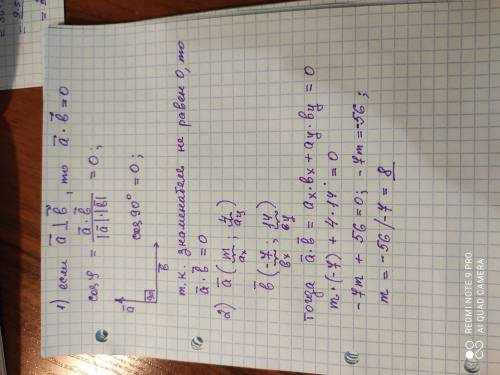 1) если a⃗ ⊥ b⃗, то a⃗ · b⃗ = 0
cos φ = a⃗ · b⃗ / |a⃗| · |b⃗| = 0;
a⃗ 90 b⃗ cos 90° = 0;
т.к. знаменатель не равен 0, то
a⃗ · b⃗ = 0
2) a⃗ (m ; 4)
ax ay
b⃗ (-7 ; 14)
bx by
тогда a⃗ · b⃗ = ax · bx + ay · by = 0
m · (-7) + 4 · 14 = 0
-7m + 56 = 0; -7m = -56;
m = -56/-7 = 8
REDMI NOTE 9
AI QUAD CAMERA